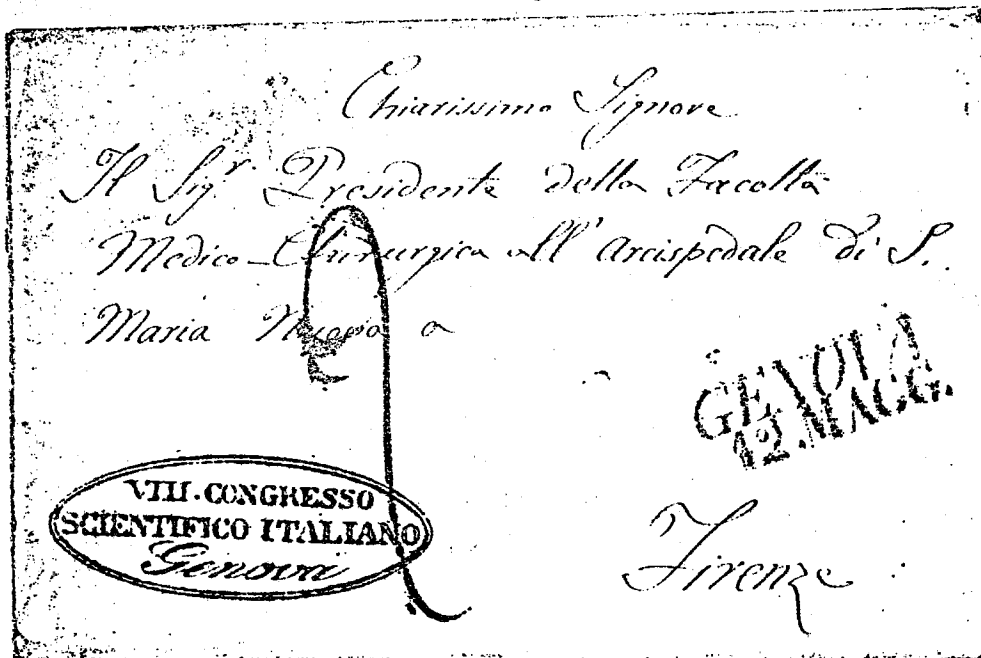 Chiarissimo Signore
Il Sig.r Presidente della Facoltà
Medico-Chirurgica all' arcispedale di S.
Maria Nuova a
GENOVA
12. MAGG.
VIII. CONGRESSO
SCIENTIFICO ITALIANO
Genova
Firenze